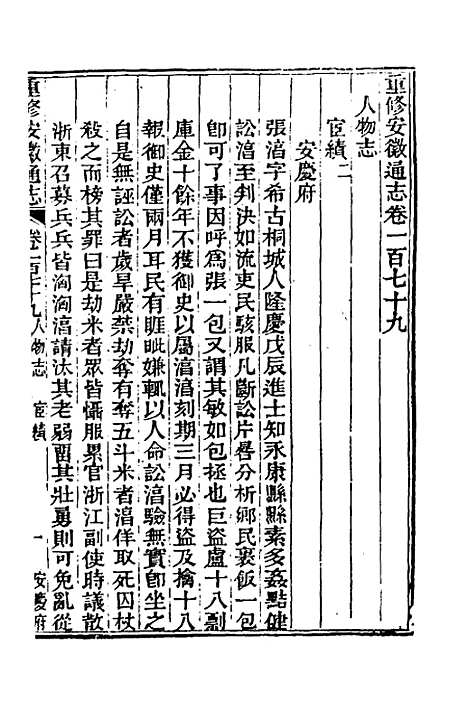 重修安徽通志卷一百七十九
人物志
宦績二
安慶府
張淓字希古桐城人隆慶戊辰進士知永康縣縣素多姦黠健
訟淓至判決如流吏民駭服凡斷訟片晷分析鄉民裹飯一包
卽可了事因呼爲張一包又謂其敏如包拯也巨盜盧十八剽
庫金十餘年不獲御史以屬淓淓刻期三月必得盜及擒十八
報御史僅兩月耳民有睚眦嫌輒以人命訟淓驗無實卽坐之
自是無誣訟者歲旱嚴禁劫奪有奪五斗米者淓佯取死囚杖
殺之而榜其罪曰是劫米者眾皆懾服累官浙江副使時議散
浙東召募兵兵皆洶洶淓請汰其老弱畱其壯勇則可免亂從
重修安徽通志 卷一百七十九 人物志 宦績 一 安慶府